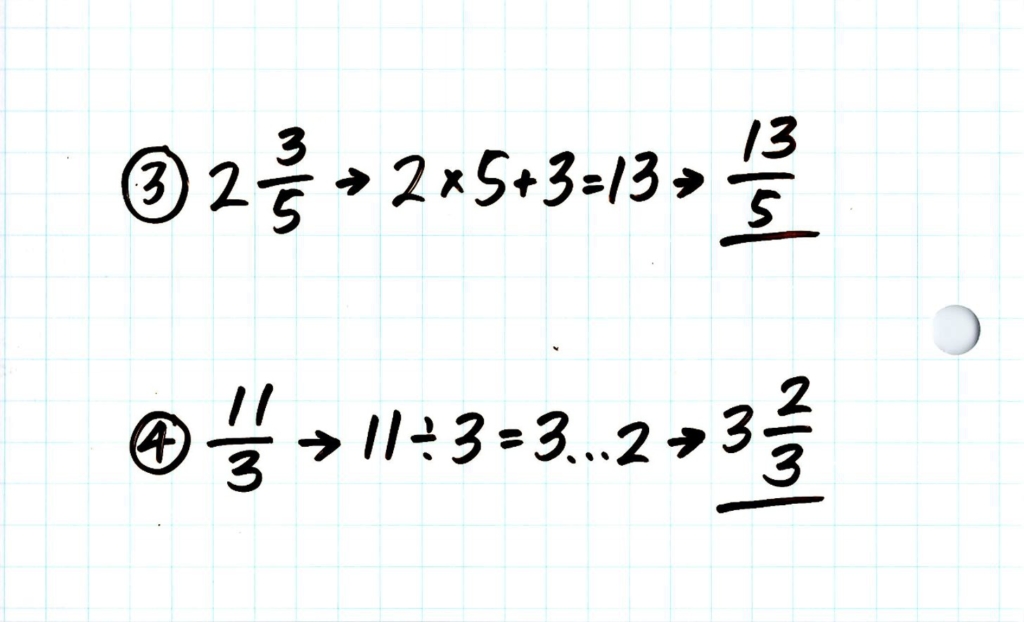 ③ 2 3/5 → 2×5+3=13 → 13/5
④ 11/3 → 11÷3=3...2 → 3 2/3